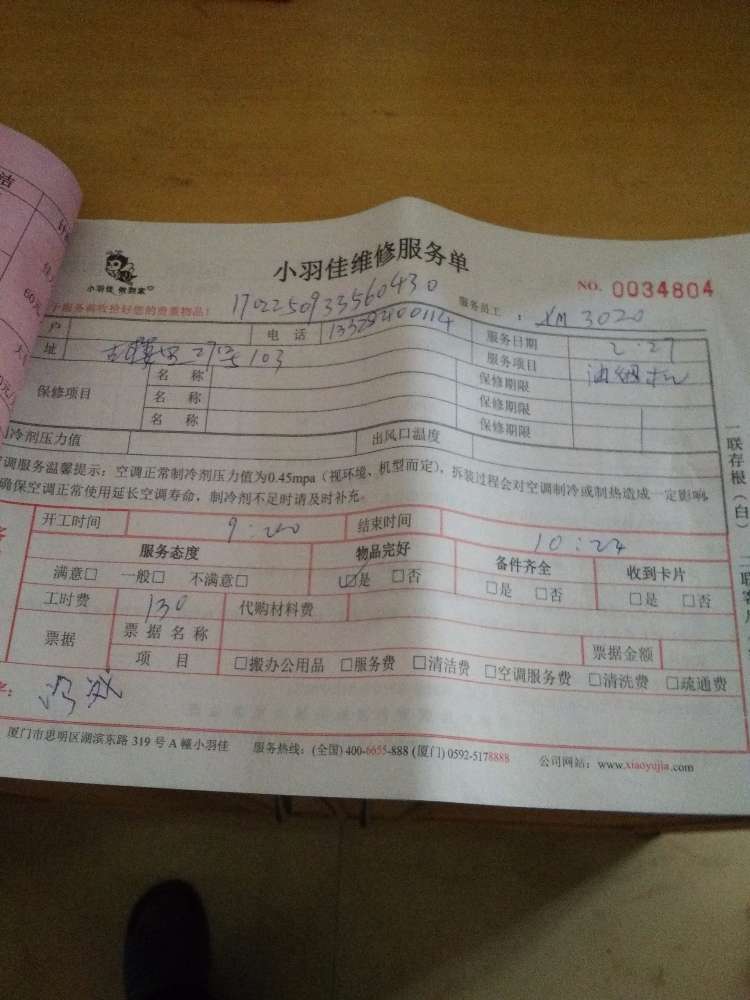 小羽佳维修服务单
小羽佳 做到家
NO. 0034804
服务前收拾好您的贵重物品！ 1702250933560430 服务员工： XM 3020
户 电话 服务日期 2.27
址 103 服务项目 油烟机
保修项目 名称 保修期限
名称 保修期限
名称 保修期限
冷剂压力值 出风口温度
调服务温馨提示：空调正常制冷剂压力值为0.45mpa（视环境、机型而定），拆装过程会对空调制冷或制热造成一定影响，
确保空调正常使用延长空调寿命，制冷剂不足时请及时补充。
开工时间 结束时间 10:24
服务态度 物品完好 备件齐全 收到卡片
满意□ 一般□ 不满意□ ☑是 □否 □是 □否 □是 □否
工时费 130 代购材料费
票据 票据名称 票据金额
项目 □搬办公用品 □服务费 □清洁费 □空调服务费 □清洗费 □疏通费
厦门市思明区湖滨东路 319 号 A 幢小羽佳 服务热线：(全国) 400-6655-888 (厦门) 0592-5178888 公司网站：www.xiaoyujia.com
一联存根（白）
60元